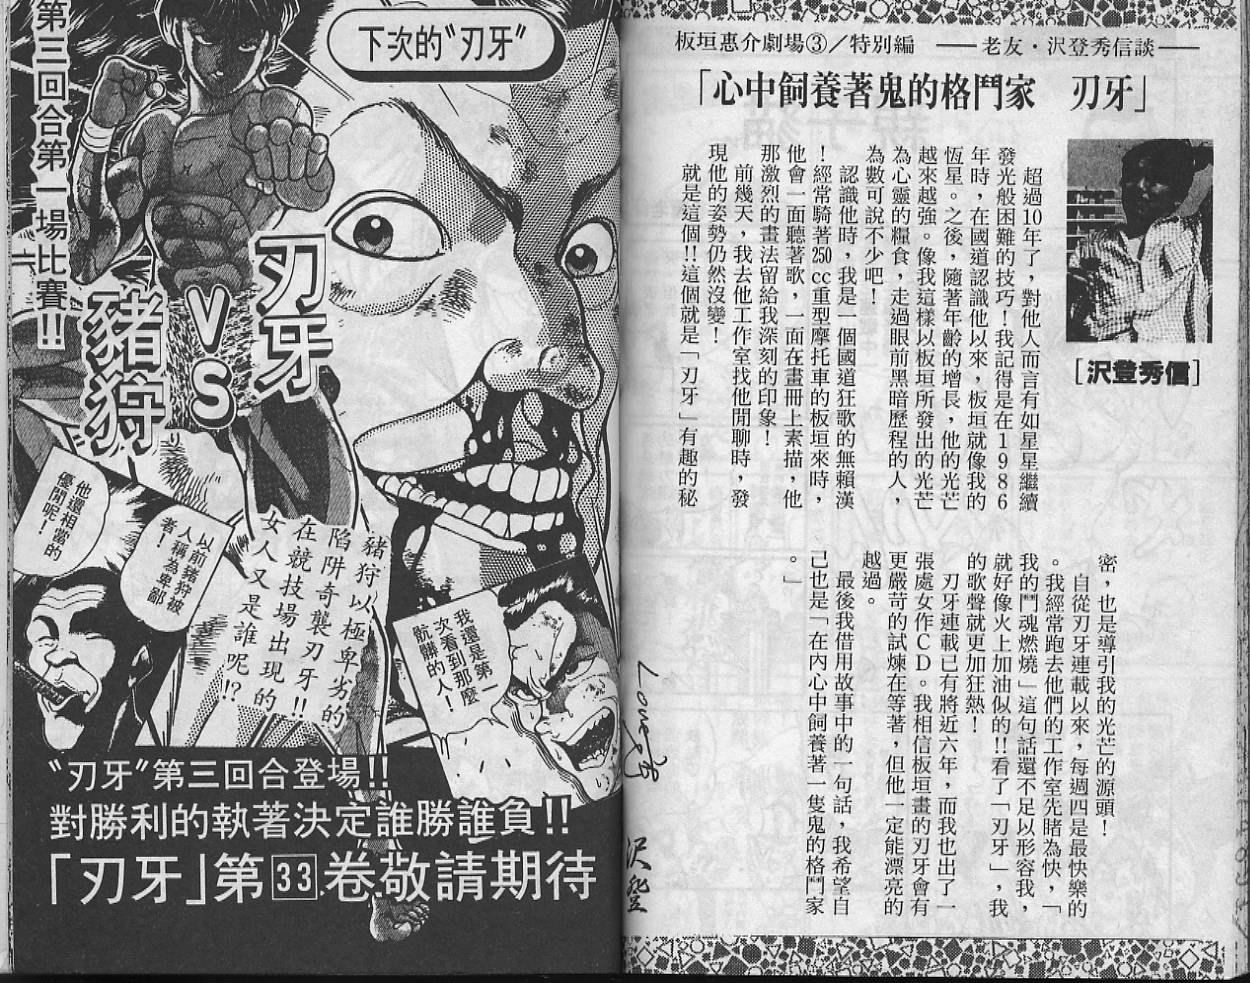 板垣惠介劇場③／特別編　——老友·沢登秀信談——
「心中飼養著鬼的格鬥家　刃牙」
［沢登秀信］
超過10年了，對他人而言有如星星繼續
發光般困難的技巧！我記得是在1986
年時，在國道認識他以來，板垣就像我的
恆星。之後，隨著年齡的增長，他的光芒
越來越強。像我這樣以板垣所發出的光芒
為心靈的糧食，走過眼前黑暗歷程的人，
為數可說不少吧！
認識他時，我是一個國道狂歌的無賴漢
！經常騎著250cc重型摩托車的板垣來時，
他會一面聽著歌，一面在畫冊上素描，他
那激烈的畫法留給我深刻的印象！
前幾天，我去他工作室找他閒聊時，發
現他的姿勢仍然沒變！
就是這個!!這個就是「刃牙」有趣的秘
密，也是導引我的光芒的源頭！
自從刃牙連載以來，每週四是最快樂的
。我經常跑去他們的工作室先賭為快，「
我的鬥魂燃燒」這句話還不足以形容我，
就好像火上加油似的!!看了「刃牙」，我
的歌聲就更加狂熱！
刃牙連載已有將近六年，而我也出了一
張處女作CD。我相信板垣畫的刃牙會有
更嚴苛的試煉在等著，但他一定能漂亮的
越過。
最後我借用故事中的一句話，我希望自
己也是「在內心中飼養著一隻鬼的格鬥家
。」
沢登
下次的“刃牙”
第三回合第一場比賽!!
刃牙
VS
豬狩
豬狩以極卑劣的
陷阱奇襲刃牙!!
在競技場出現的
女人又是誰呢!?
以前豬狩被
人稱為卑鄙
者！
他還相當的
優閒呢！
我還是第一
次看到那麼
骯髒的人！
“刃牙”第三回合登場!!
對勝利的執著決定誰勝誰負!!
「刃牙」第33卷敬請期待